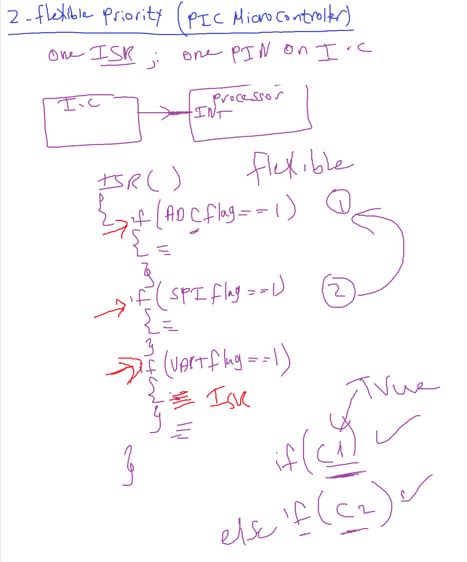 2-flexible Priority (PIC Microcontroller)
one ISR ; one PIN on I.C
I.C
processor
INT
flexible
ISR ( )
{
if (ADC flag == 1)
{ =
}
if (SPI flag == 1)
{ =
}
if (UART flag == 1)
{ ISR
}
}
1
2
True
if (C1)
else if (C2)